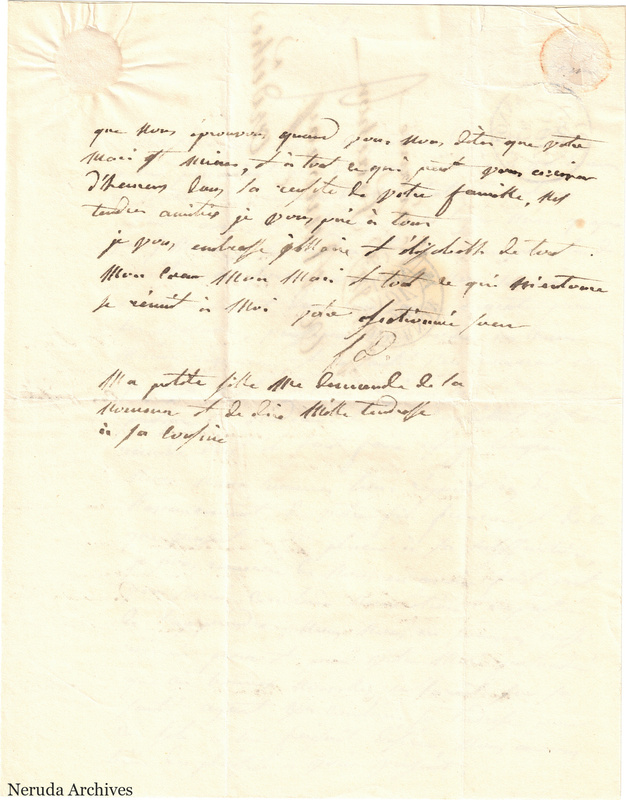 que nous éprouvons, quand vous nous dites que votre
mari et mieux, et à tout ce qui peut vous arriver
d'heureux dans la reste de votre famille, mes
tendres amitiés je vous prie à tous
je vous embrasse Marie et élisabeth de tout
mon cœur mon mari et tout ce qui m'entoure
se réunit à moi votre affectionnée sœur
Ma petite fille me demande de la
nommer et de dire mille tendresse
à sa cousine
Neruda Archives